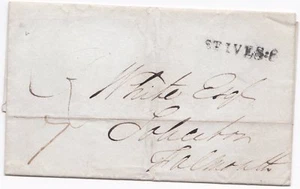 ST IVES
White Esq
Solicitor
Falmouth